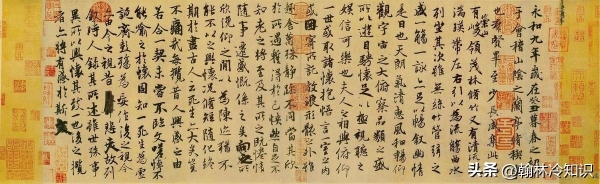 永和九年歲在癸丑暮春之初會
于會稽山陰之蘭亭脩稧事
也羣賢畢至少長咸集此地
有崇山峻領茂林脩竹又有清流激
湍暎帶左右引以為流觴曲水
列坐其次雖無絲竹管弦之
盛一觴一詠亦足以暢敘幽情
是日也天朗氣清惠風和暢仰
觀宇宙之大俯察品類之盛
所以遊目騁懷足以極視聽之
娛信可樂也夫人之相與俯仰
一世或取諸懷抱悟言一室之內
或因寄所託放浪形骸之外雖
趣舍萬殊靜躁不同當其欣
於所遇蹔得於己怏然自足不
知老之將至及其所之既惓情
隨事遷感慨係之矣向之所
欣俛仰之閒以為陳迹猶不
能不以之興懷況脩短隨化終
期於盡古人云死生亦大矣豈
不痛哉每攬昔人興感之由
若合一契未嘗不臨文嗟悼不
能喻之於懷固知一死生為虛
誕齊彭殤為妄作後之視今
亦由今之視昔悲夫故列
敘時人錄其所述雖世殊事
異所以興懷其致一也後之攬
者亦將有感於斯文
头条 @翰林冷知识